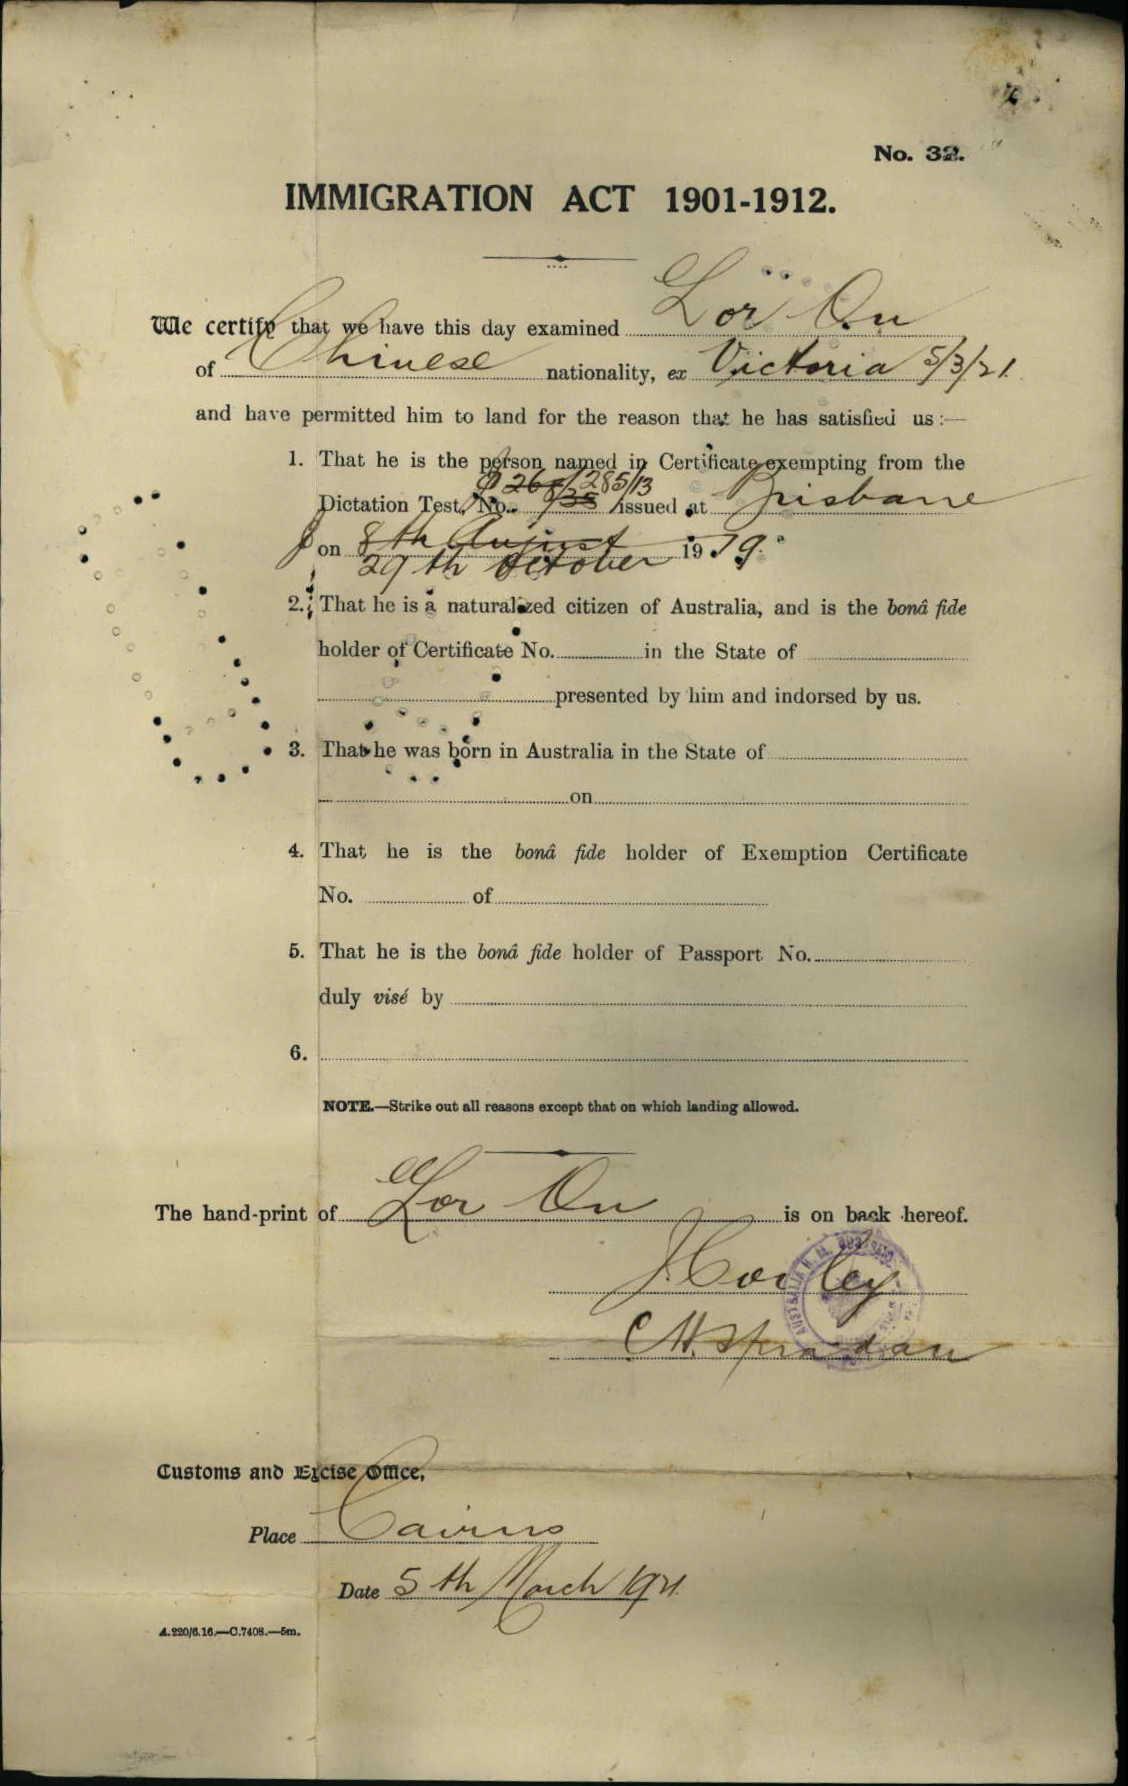 No. 32.
IMMIGRATION ACT 1901-1912.
We certify that we have this day examined Lor On
of Chinese nationality, ex Victoria 5/3/21.
and have permitted him to land for the reason that he has satisfied us :—
1. That he is the person named in Certificate exempting from the
285/13
Dictation Test, No. issued at Brisbane
on 8th August 1919.
29th October
2. That he is a naturalized citizen of Australia, and is the bonâ fide
holder of Certificate No. in the State of
presented by him and indorsed by us.
3. That he was born in Australia in the State of
on
4. That he is the bonâ fide holder of Exemption Certificate
No. of
5. That he is the bonâ fide holder of Passport No.
duly visé by
6.
NOTE.—Strike out all reasons except that on which landing allowed.
The hand-print of Lor On is on back hereof.
Customs and Excise Office,
Place Cairns
Date 5th March 1921.
A.220/6.16.—C.7408.—5m.